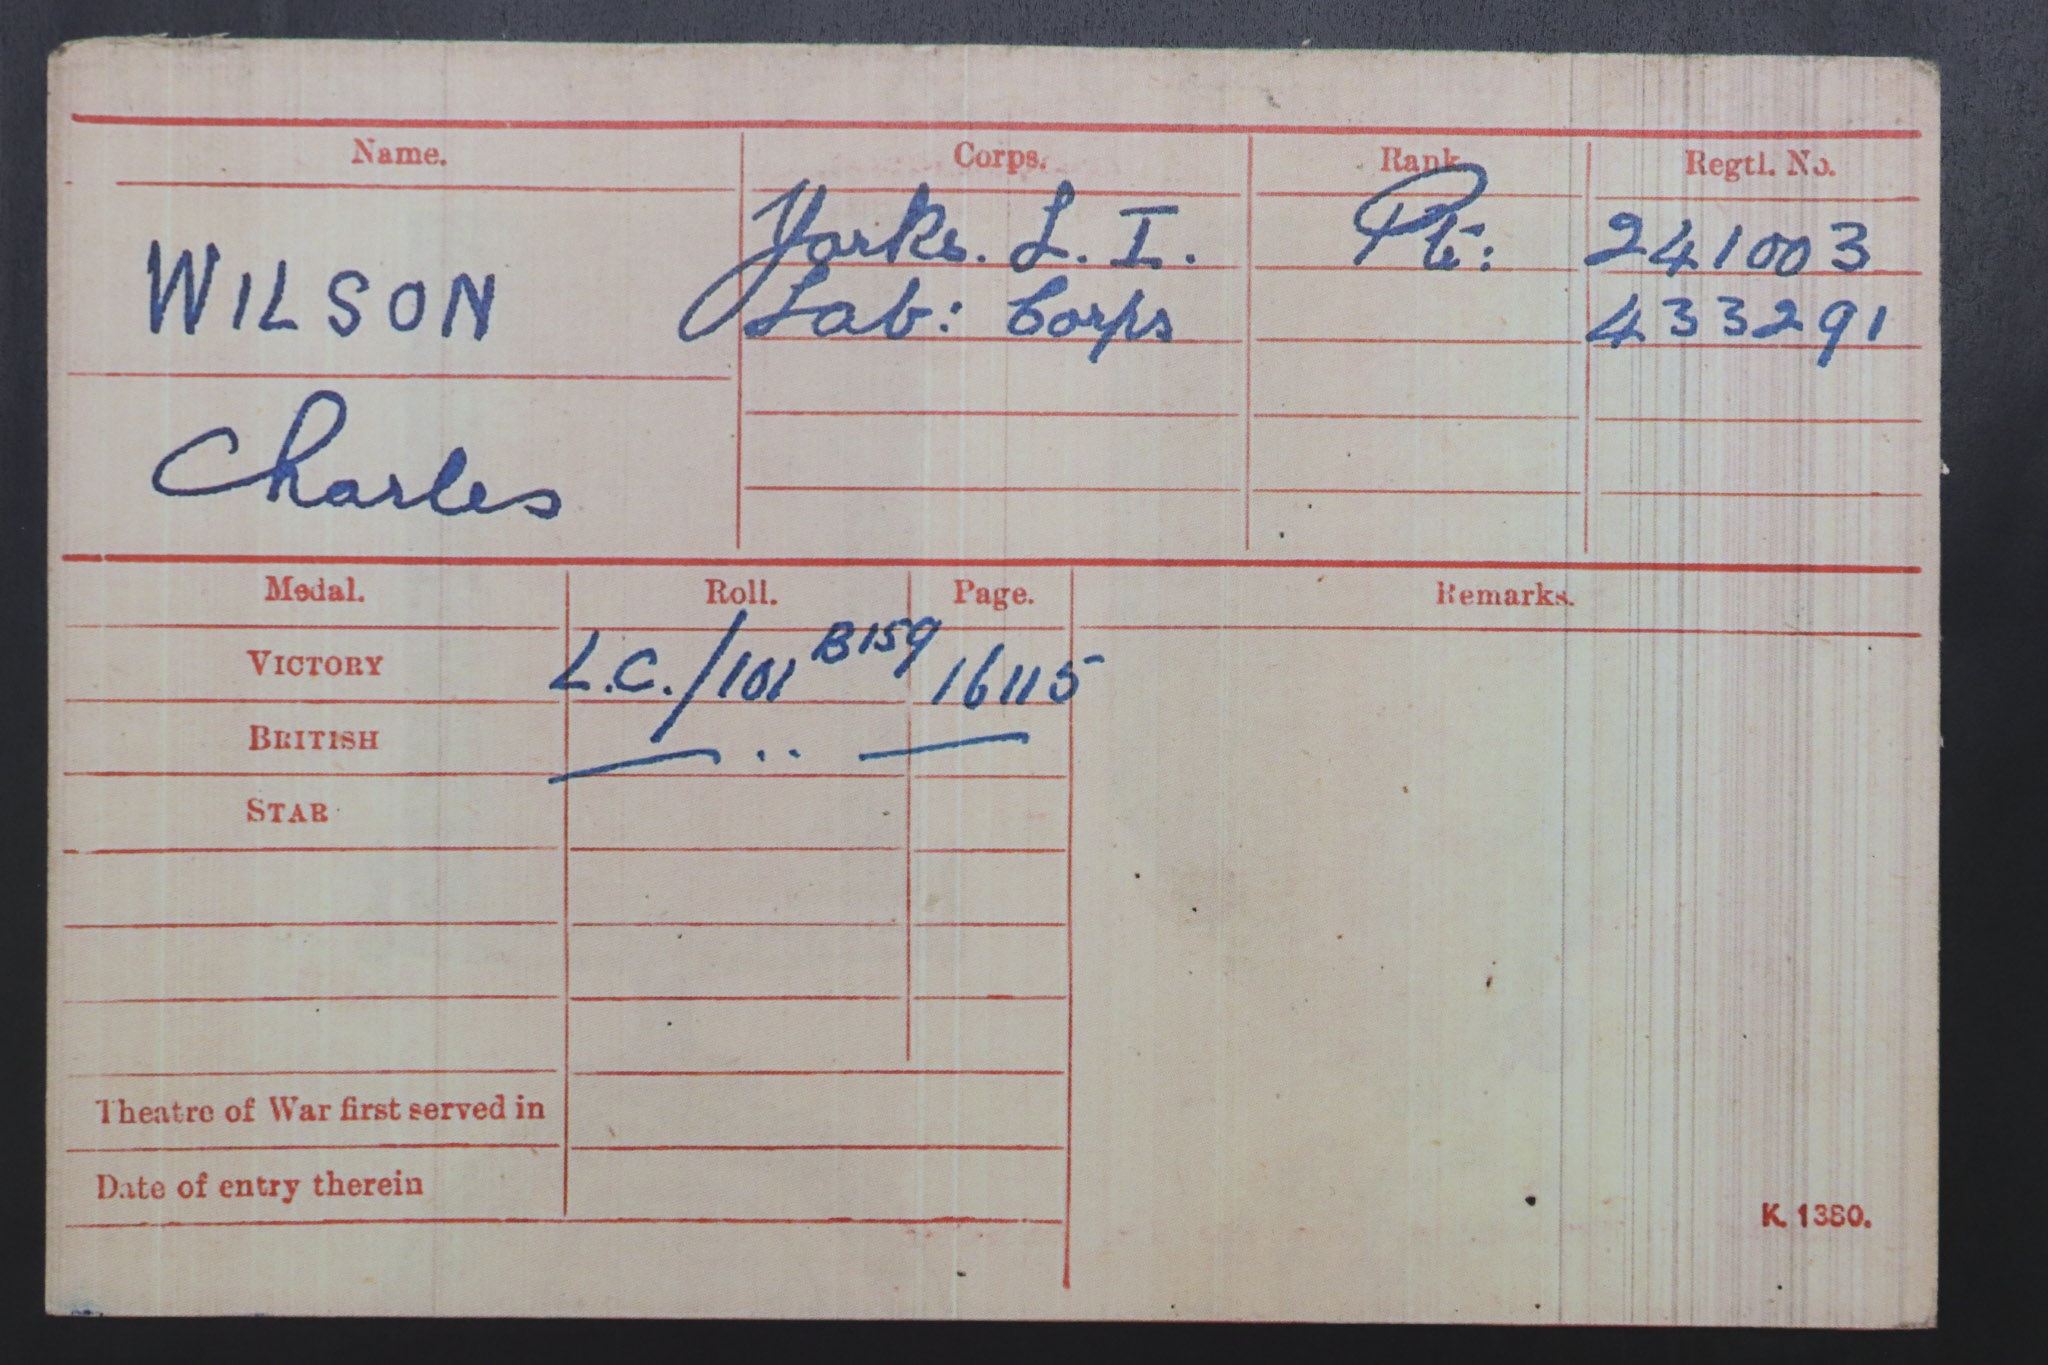 Name. Corps. Rank. Regtl. No.
WILSON Yorks. L. I. Pte: 241003
Lab: Corps 433291
Charles
Medal. Roll. Page. Remarks.
VICTORY L.C./101 B159 16115
BRITISH —— .. ——
STAR
Theatre of War first served in
Date of entry therein
K. 1380.